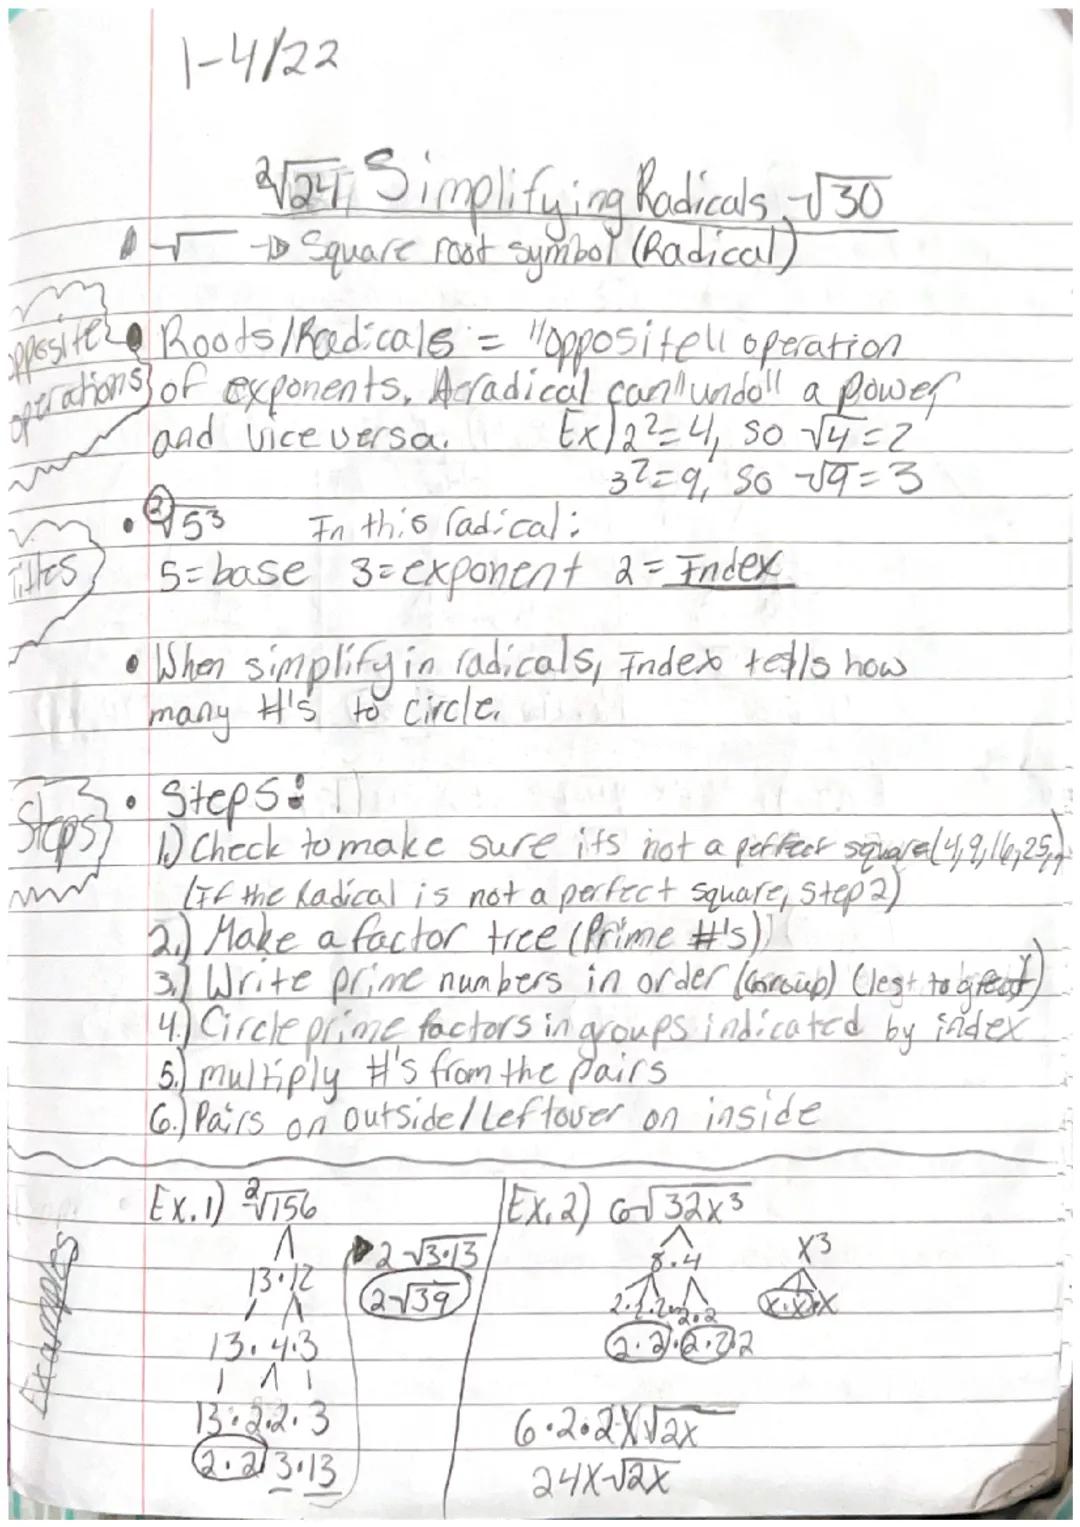 1-4/22
²√24, Simplifying Radicals, √30
√ → Square root symbol (Radical)
opposite operations
• Roots/Radicals = "opposite" operation
of exponents. A radical can "undo" a power
and vice versa. Ex) 2²=4, so √4=2
3²=9, so √9=3
• ²√5³ In this radical:
Titles
5=base 3=exponent 2=Index
• When simplifyin radicals, Index tells how
many #'s to circle.
Steps
• Steps:
1.) Check to make sure its not a perfect square (4,9,16,25,)
(If the Radical is not a perfect square, step 2)
2.) Make a factor tree (Prime #'s)
3.) Write prime numbers in order (Group) (lest to great)
4.) Circle prime factors in groups indicated by index
5.) multiply #'s from the pairs
6.) Pairs on outside/Leftover on inside
Examples
Ex.1) ²√156
13·12
13·4·3
13·2·2·3
2·2 3·13
2√3·13
2√39
Ex.2) 6√32x³
8·4 x³
2·2·2 2·2 x·x·x
2·2·2·2·2
6·2·2X√2x
24X√2x